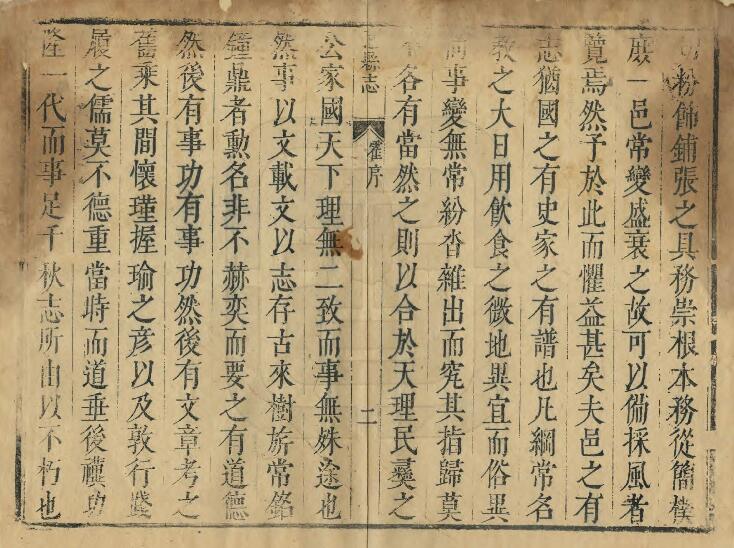 粉飾鋪張之具務崇根本務從簡樸
庻一邑常變盛衰之故可以俻採風者
覽焉然予於此而懼益甚矣夫邑之有
志猶國之有史家之有譜也凡綱常名
教之大日用飲食之微地異宜而俗異
尚事變無常紛沓雜出而究其指歸莫
各有當然之則以合於天理民彞之
縣志
霍序
二
公家國天下理無二致而事無姝途也
然事以文載文以志存古來樹旂常銘
鐘鼎者勳名非不赫奕而要之有道德
然後有事功有事功然後有文章考之
舊乘其間懷瑾握瑜之彦以及敦行踐
履之儒莫不德重當時而道垂後禩功
隆一代而事足千秋志所由以不朽也